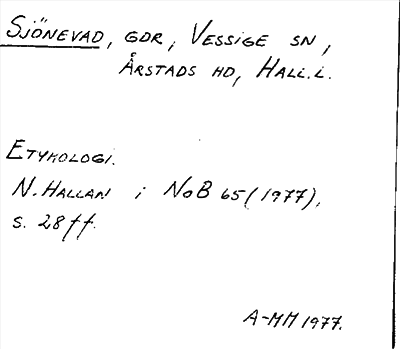 Sjönevad, gdr, Vessige sn,
Årstads hd, Hall.l.
Etymologi.
N. Hallan i NoB 65 (1977),
s. 28 ff.
A-MM 1977.